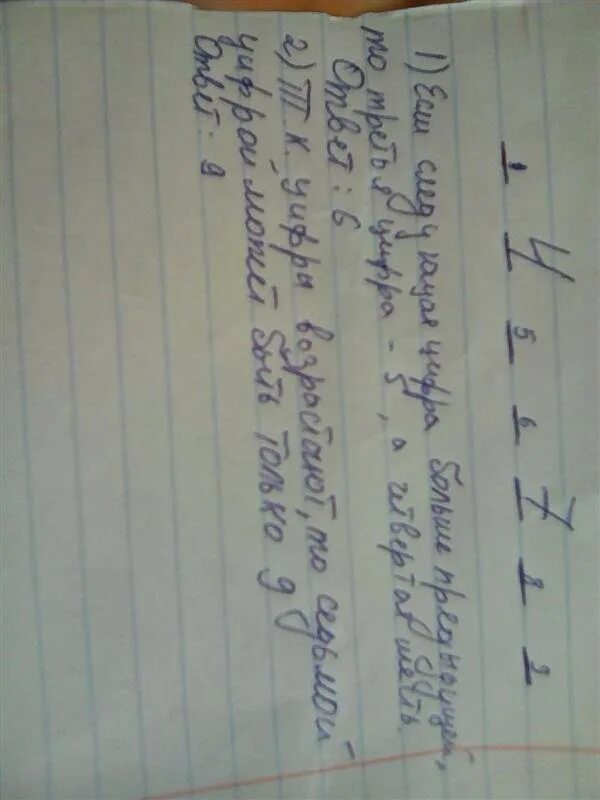 1 4 5 6 7 8 9
1) Если следующая цифра больше предыдущей,
то третья цифра - 5, а четвертая шесть.
Ответ: 6
2) Т.к. цифры возрастают, то седьмой
цифрой может быть только 9
Ответ: 9